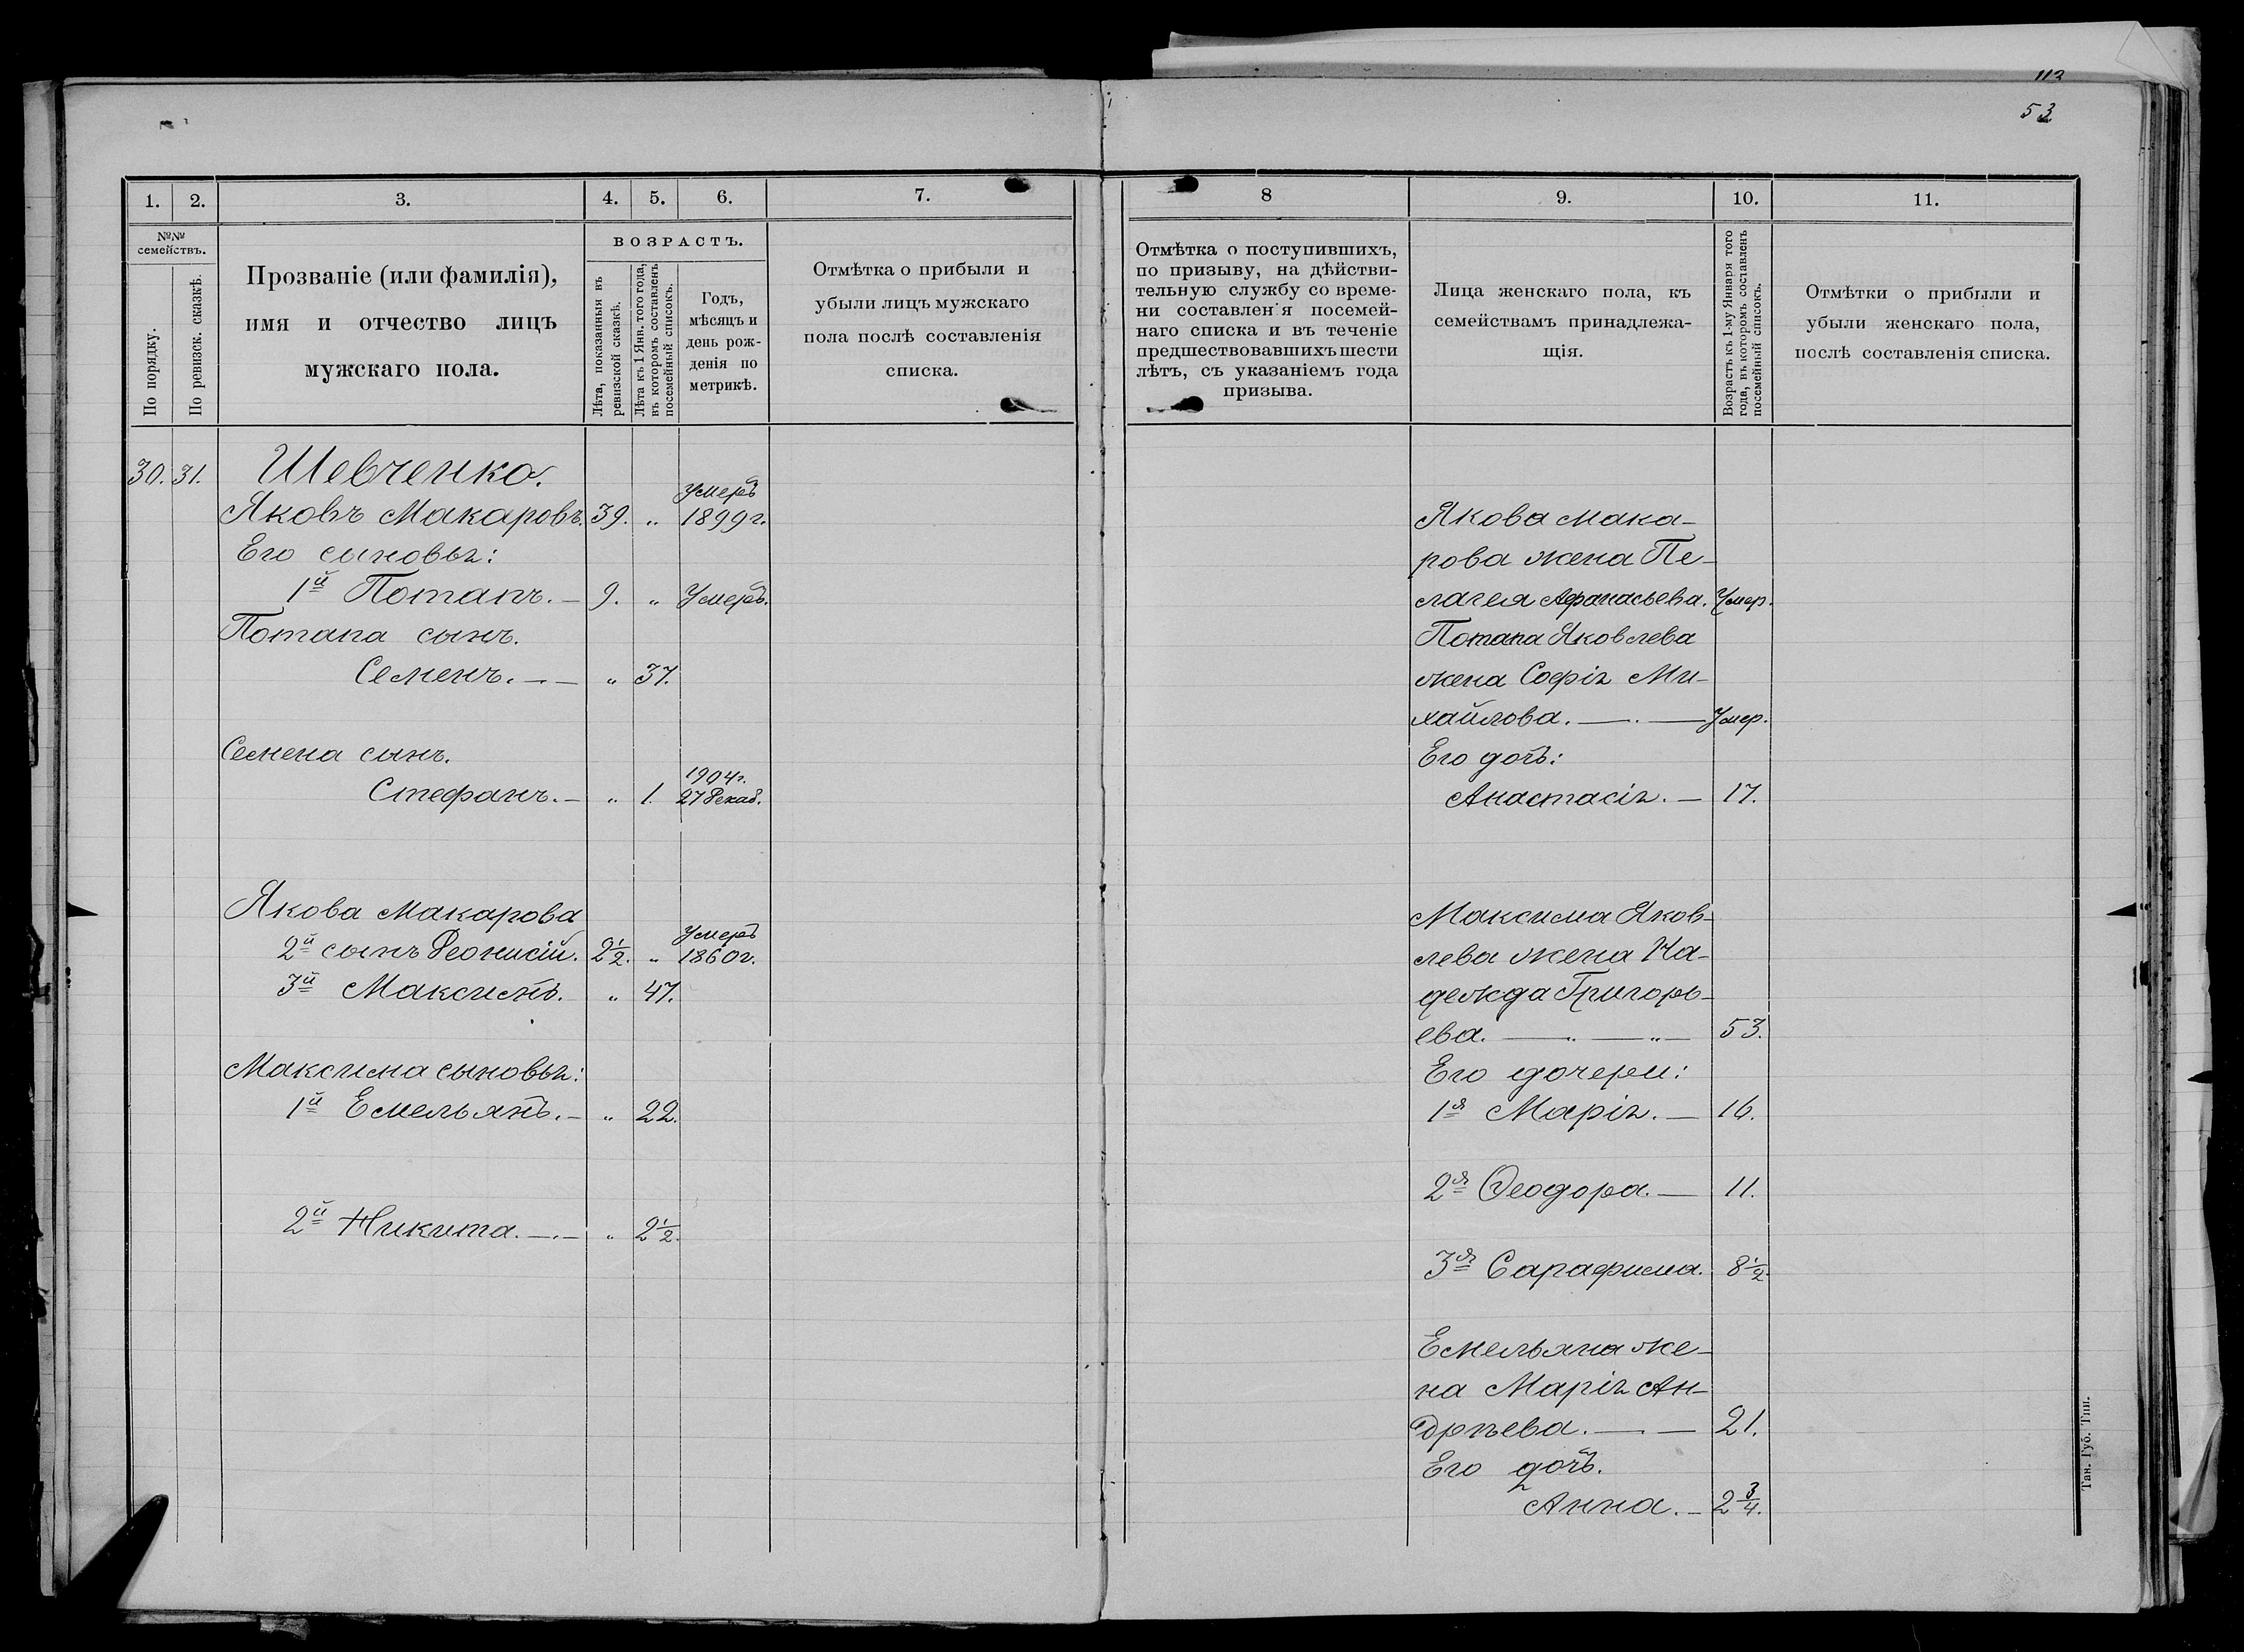 113
53
1. 2. 3. 4. 5. 6. 7.
№№ семействъ.
По порядку.
По ревизск. сказкѣ.
Прозваніе (или фамилія),
имя и отчество лицъ
мужскаго пола.
ВОЗРАСТЪ.
Лѣта, показанныя въ
ревизской сказкѣ.
Лѣта къ 1 Янв. того года,
въ которомъ составленъ
посемейный списокъ.
Годъ,
мѣсяцъ и
день рож-
денія по
метрикѣ.
Отмѣтка о прибыли и
убыли лицъ мужскаго
пола послѣ составленія
списка.
30. 31. Шевченко.
Умеръ
Яковъ Макаровъ. 39. „ 1899 г.
Его сыновья:
1й Потапъ. — 9. „ Умеръ.
Потапа сынъ.
Семенъ. — — „ 37.
Семена сынъ.
1904 г.
Стефанъ. — „ 1. 27 Декаб.
Якова Макарова
Умеръ
2й сынъ Деонисій. 2 1/2. „ 1860 г.
3й Максимъ. „ 47.
Максима сыновья:
1й Емельянъ. — „ 22.
2й Никита. — — „ 2 1/2.
8 9. 10. 11.
Отмѣтка о поступившихъ,
по призыву, на дѣйстви-
тельную службу со време-
ни составленія посемей-
наго списка и въ теченіе
предшествовавшихъ шести
лѣтъ, съ указаніемъ года
призыва.
Лица женскаго пола, къ
семействамъ принадлежа-
щія.
Возрастъ къ 1-му Января того
года, въ которомъ составленъ
посемейный списокъ.
Отмѣтки о прибыли и
убыли женскаго пола,
послѣ составленія списка.
Якова Мака-
рова жена Пе-
лагея Афанасьева. Умер.
Потапа Яковлева
жена Софія Ми-
хайлова. — — Умер.
Его дочь:
Анастасія. — 17.
Максима Яков-
лева жена На-
дежда Григорь-
ева. — „ — „ — 53.
Его дочери:
1я Марія. — 16.
2я Ѳеодора. — 11.
3я Сарафима. 8 1/2.
Емельяна же-
на Марія Ан-
дрѣева. — — 21.
Его дочь.
Анна. — 2 3/4.
Тав. Губ. Тип.